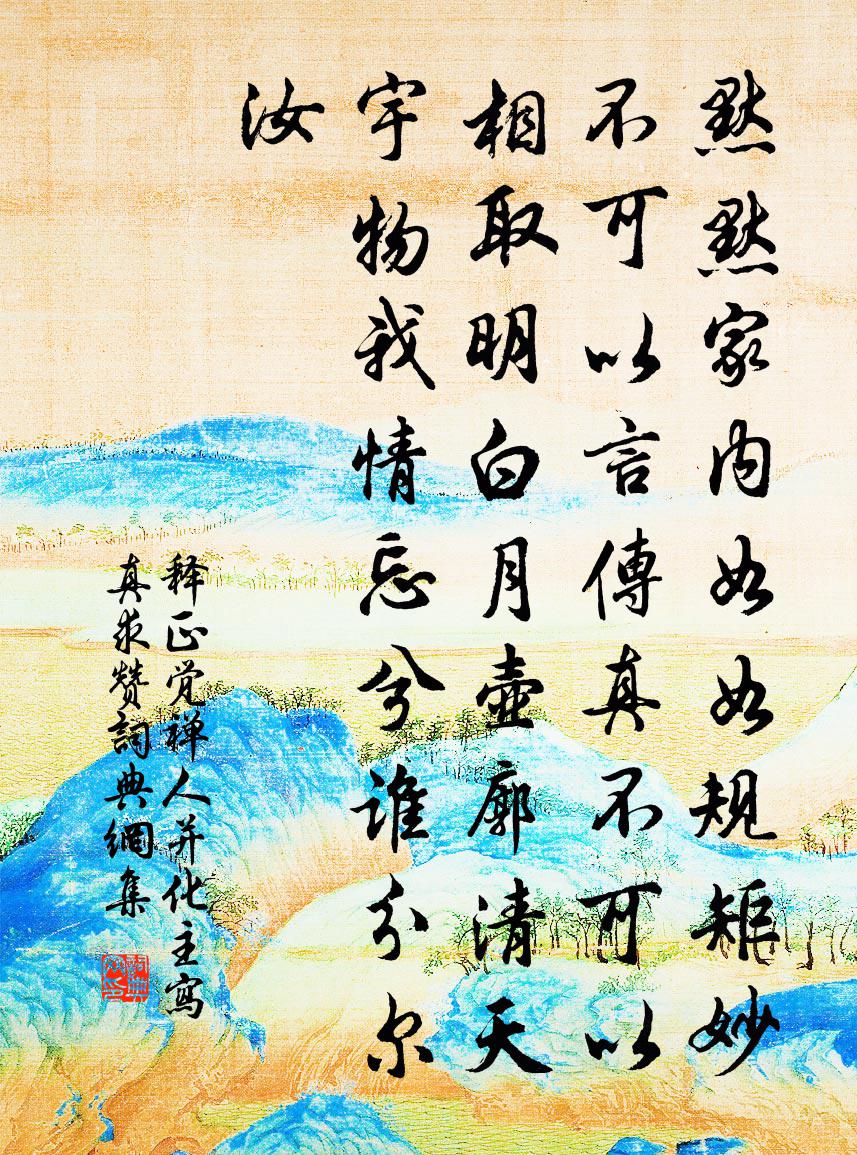 黙黙家内如如規矩妙
不可以言傳真不可以
相取明白月壺廓清天
宇物我情忘兮誰分尔
汝
释正觉禅人并化主寫
真求赞詞典網集